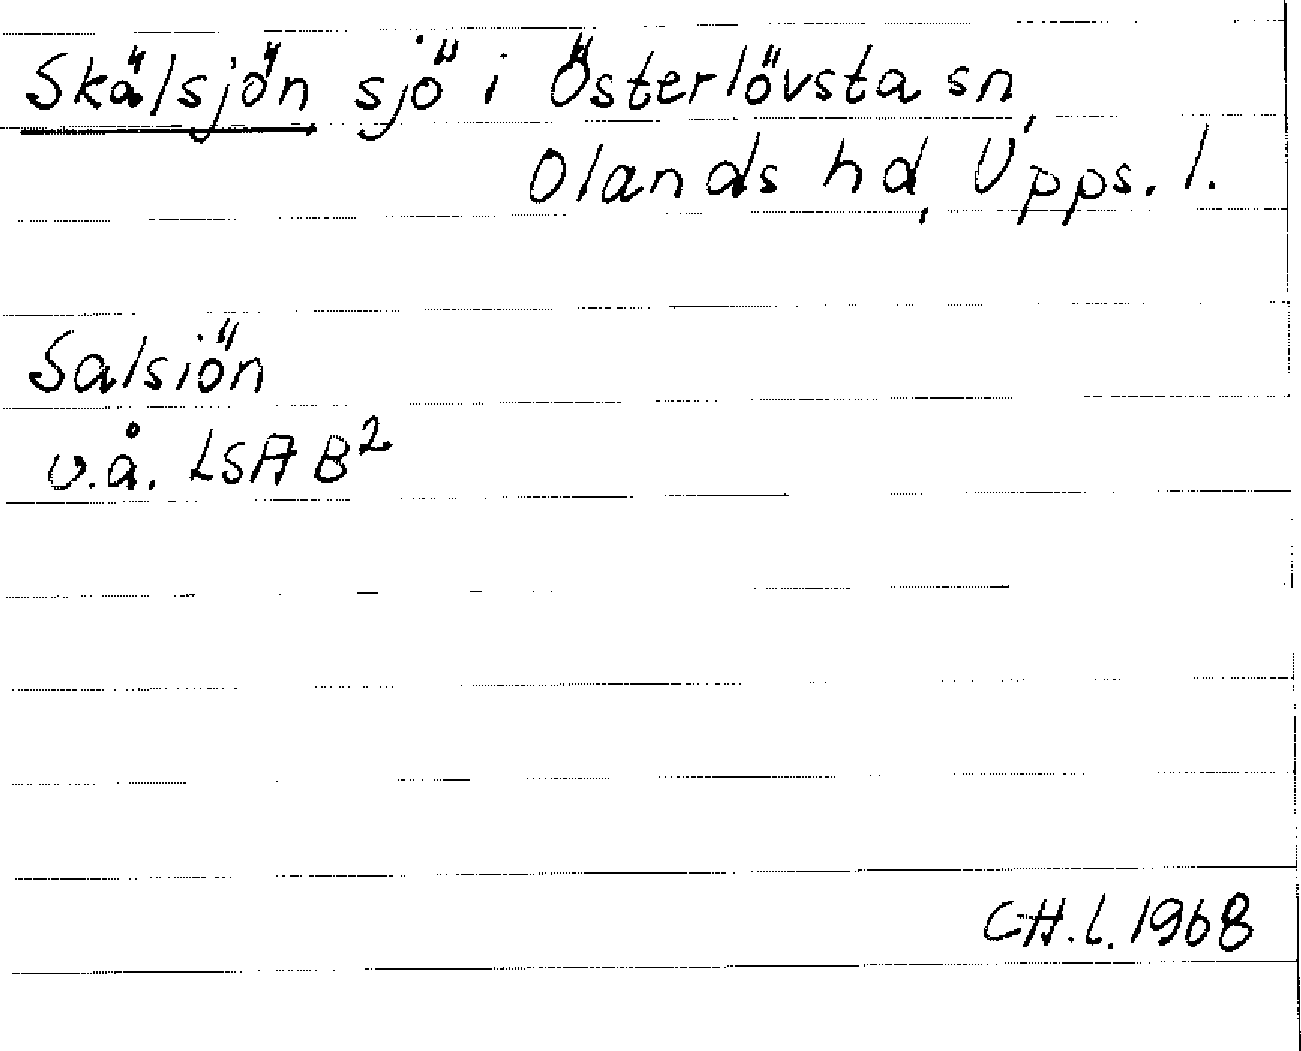 Skälsjön sjö i Österlövsta sn,
Olands hd, Upps. l.
Salsiön
u.å. LSA B²
CH.L. 1968